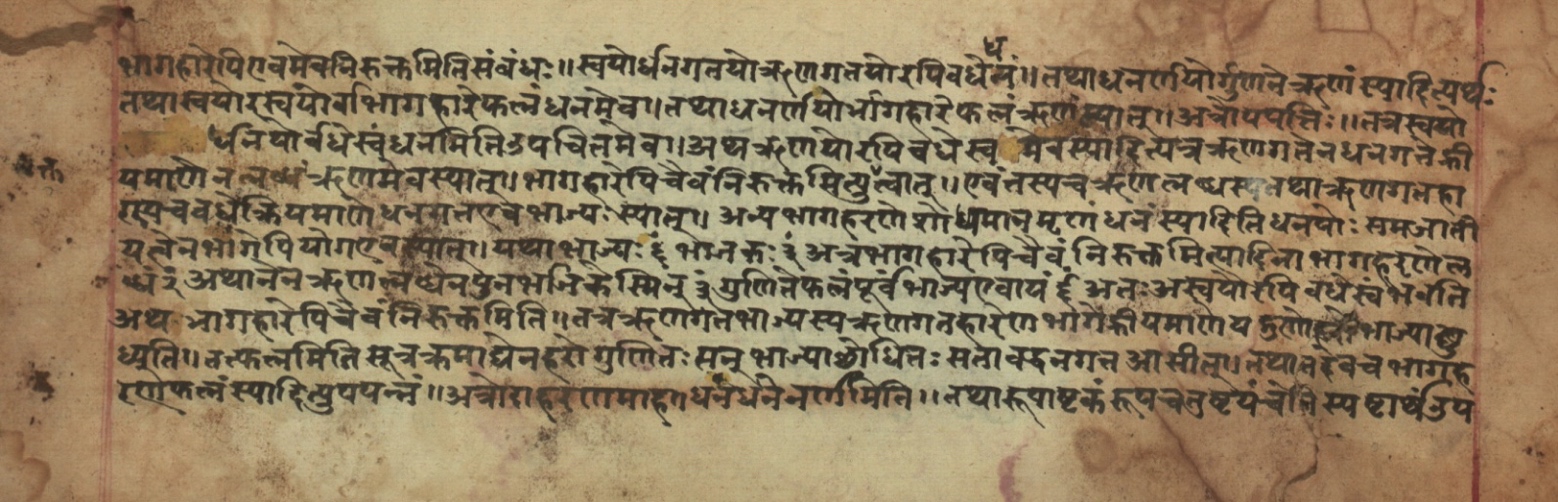 भागहारेपिएवमेवनिरुक्तमितिसंबंधः॥स्वयोर्धनगतयोऋणगतयोरपिवधेधनं॥तथाधनर्णयोर्गुणनेऋणंस्यादित्यर्थः
तथास्वयोरस्वयोर्वाभागहारेफलंधनमेव॥तथाधनर्णयोर्भागहारेफलंऋणंस्यात्॥अत्रोपपत्तिः॥तत्रस्वयो
र्धनयोर्वधेस्वंधनमितिउपचितमेव॥अथऋणयोरपिवधेस्वमेवस्यादित्यत्रऋणगतेनधनगतेक्री
यमाणेनलब्धंऋणमेवस्यात्॥भागहारेपिचैवंनिरुक्तमित्युत्कत्वात्॥एवंतस्यचऋणलब्धस्यतथाऋणगतहा
रस्यचवधेक्रियमाणेधनगतएवभाज्यःस्यात्। अन्यभागहरणेशोध्यमानमृणंधनंस्यादितिधनयोः समजाती
यत्वेनभागेपियोगएवस्यात्॥यथाभाज्यः भाजकः अत्रभागहारेपिचैवंनिरुक्तमित्यादिनाभागहरणेल
ब्धं अथानेनऋणलब्धेनपुनर्भाजकेस्मिन् गुणितेफलंपूर्वंभाज्यएवायं अतःअस्वयोरपिवधेस्वंभवति
अथ भागहारेपिचैवंनिरुक्तमिति॥तत्रऋणगतभाज्यस्यऋणगतहारेणभागेक्रीयमाणेयद्गुणोहरोभाज्याच्छु
ध्यति॥तत्फलमितिसूत्रक्रमाद्येनहरोगुणितः सन्भाज्याच्छोधितः सतावद्धनगतआसीत्॥तथातदेवचभागह
रणेफलंस्यादित्युपपन्नं॥अत्रोदाहरणमाहाधनंधनेनर्णमिति॥तथारूपाष्टकंरूपचतुष्टयंचेतिस्पष्टार्थंउप